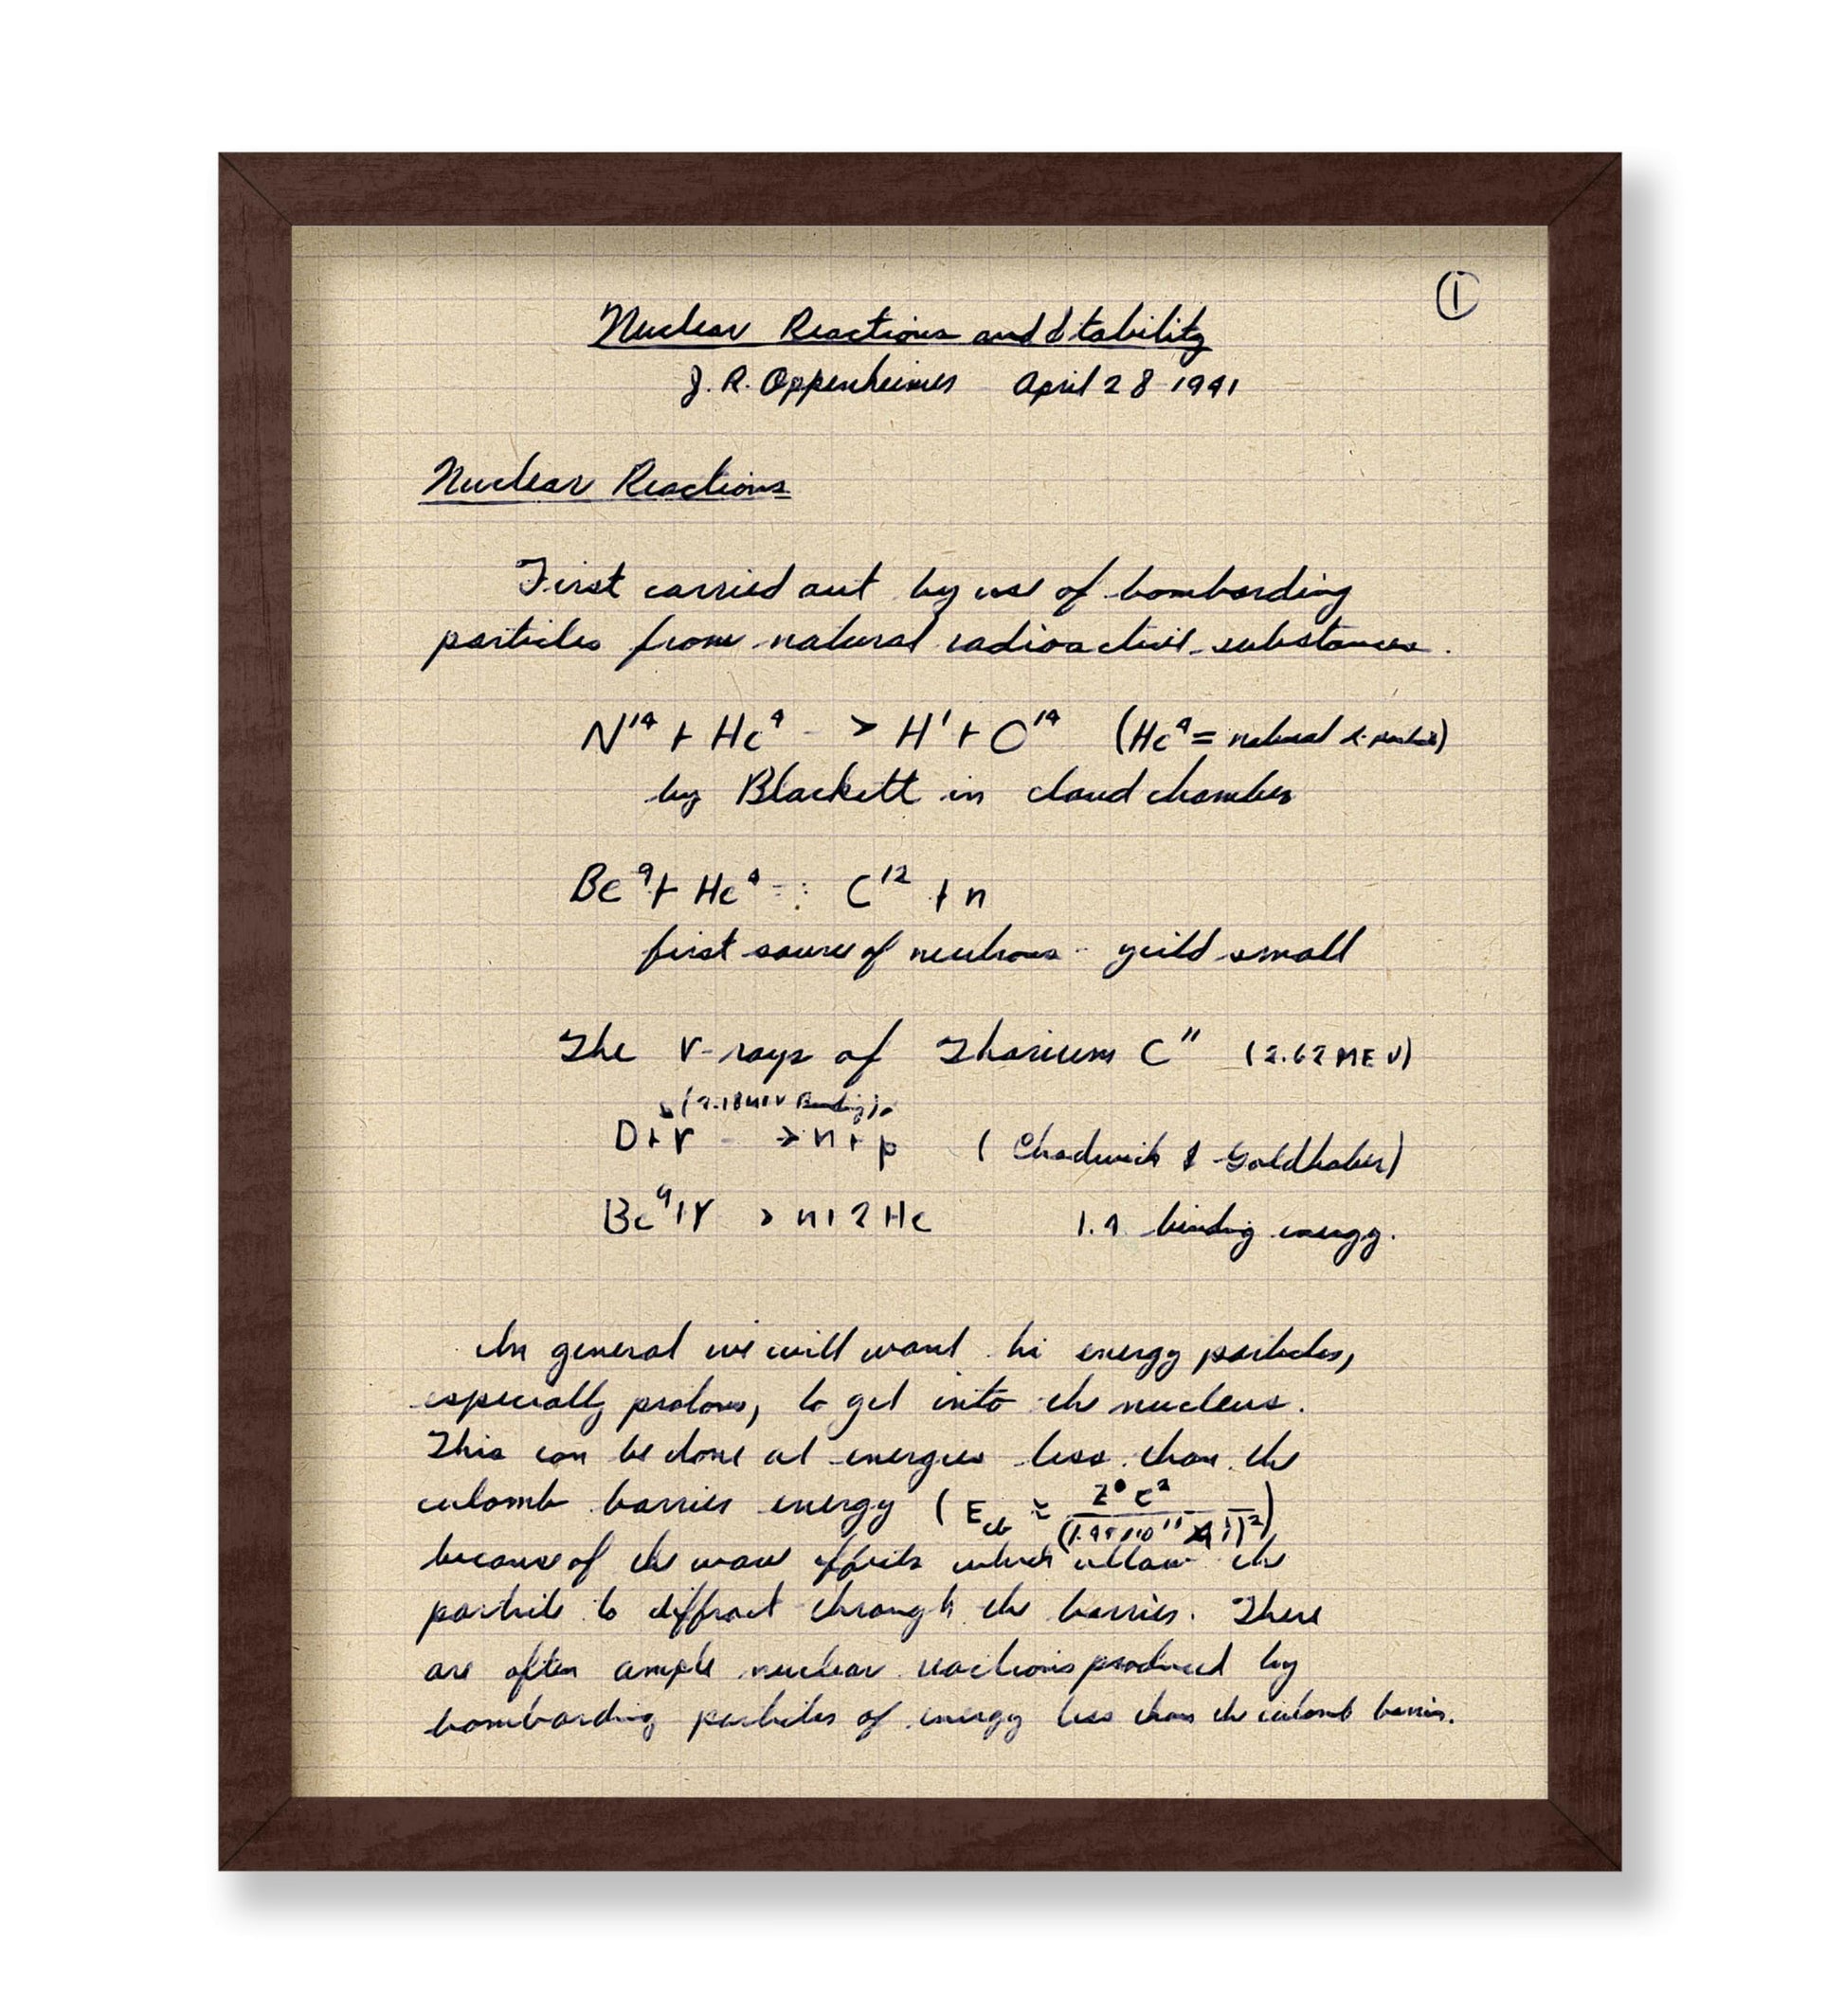 ①
Nuclear Reactions and Stability
J. R. Oppenheimer April 28 1941
Nuclear Reactions
First carried out by use of bombarding
particles from natural radioactive substances.
N¹⁴ + He⁴ -> H¹ + O¹⁴ (He⁴ = natural α-particle)
by Blackett in cloud chamber
Be⁹ + He⁴ C¹² + n
first source of neutrons - yeild small
The γ-rays of Thorium C" (2.62 MEV)
(2.18 MEV Binding)
D + γ -> n + p (Chadwick & Goldhaber)
Be⁹ + γ > n + 2 He binding energy.
In general we will want hi energy particles,
especially protons, to get into the nucleus.
This can be done at energies less than the
culomb barrier energy (E_cb ≈
because of the wave effects which allow the
particle to diffract through the barrier. There
are often ample nuclear reactions produced by
bombarding particles of energy less than the culomb barrier.